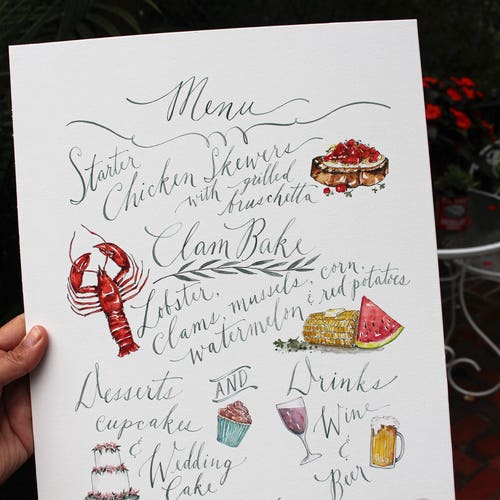 Menu
Starter
Chicken Skewers
with grilled
bruschetta
Clam Bake
Lobster,
clams, mussels, corn,
watermelon & red potatoes
Desserts AND Drinks
cupcakes
&
Wedding
Cake
Wine
&
Beer